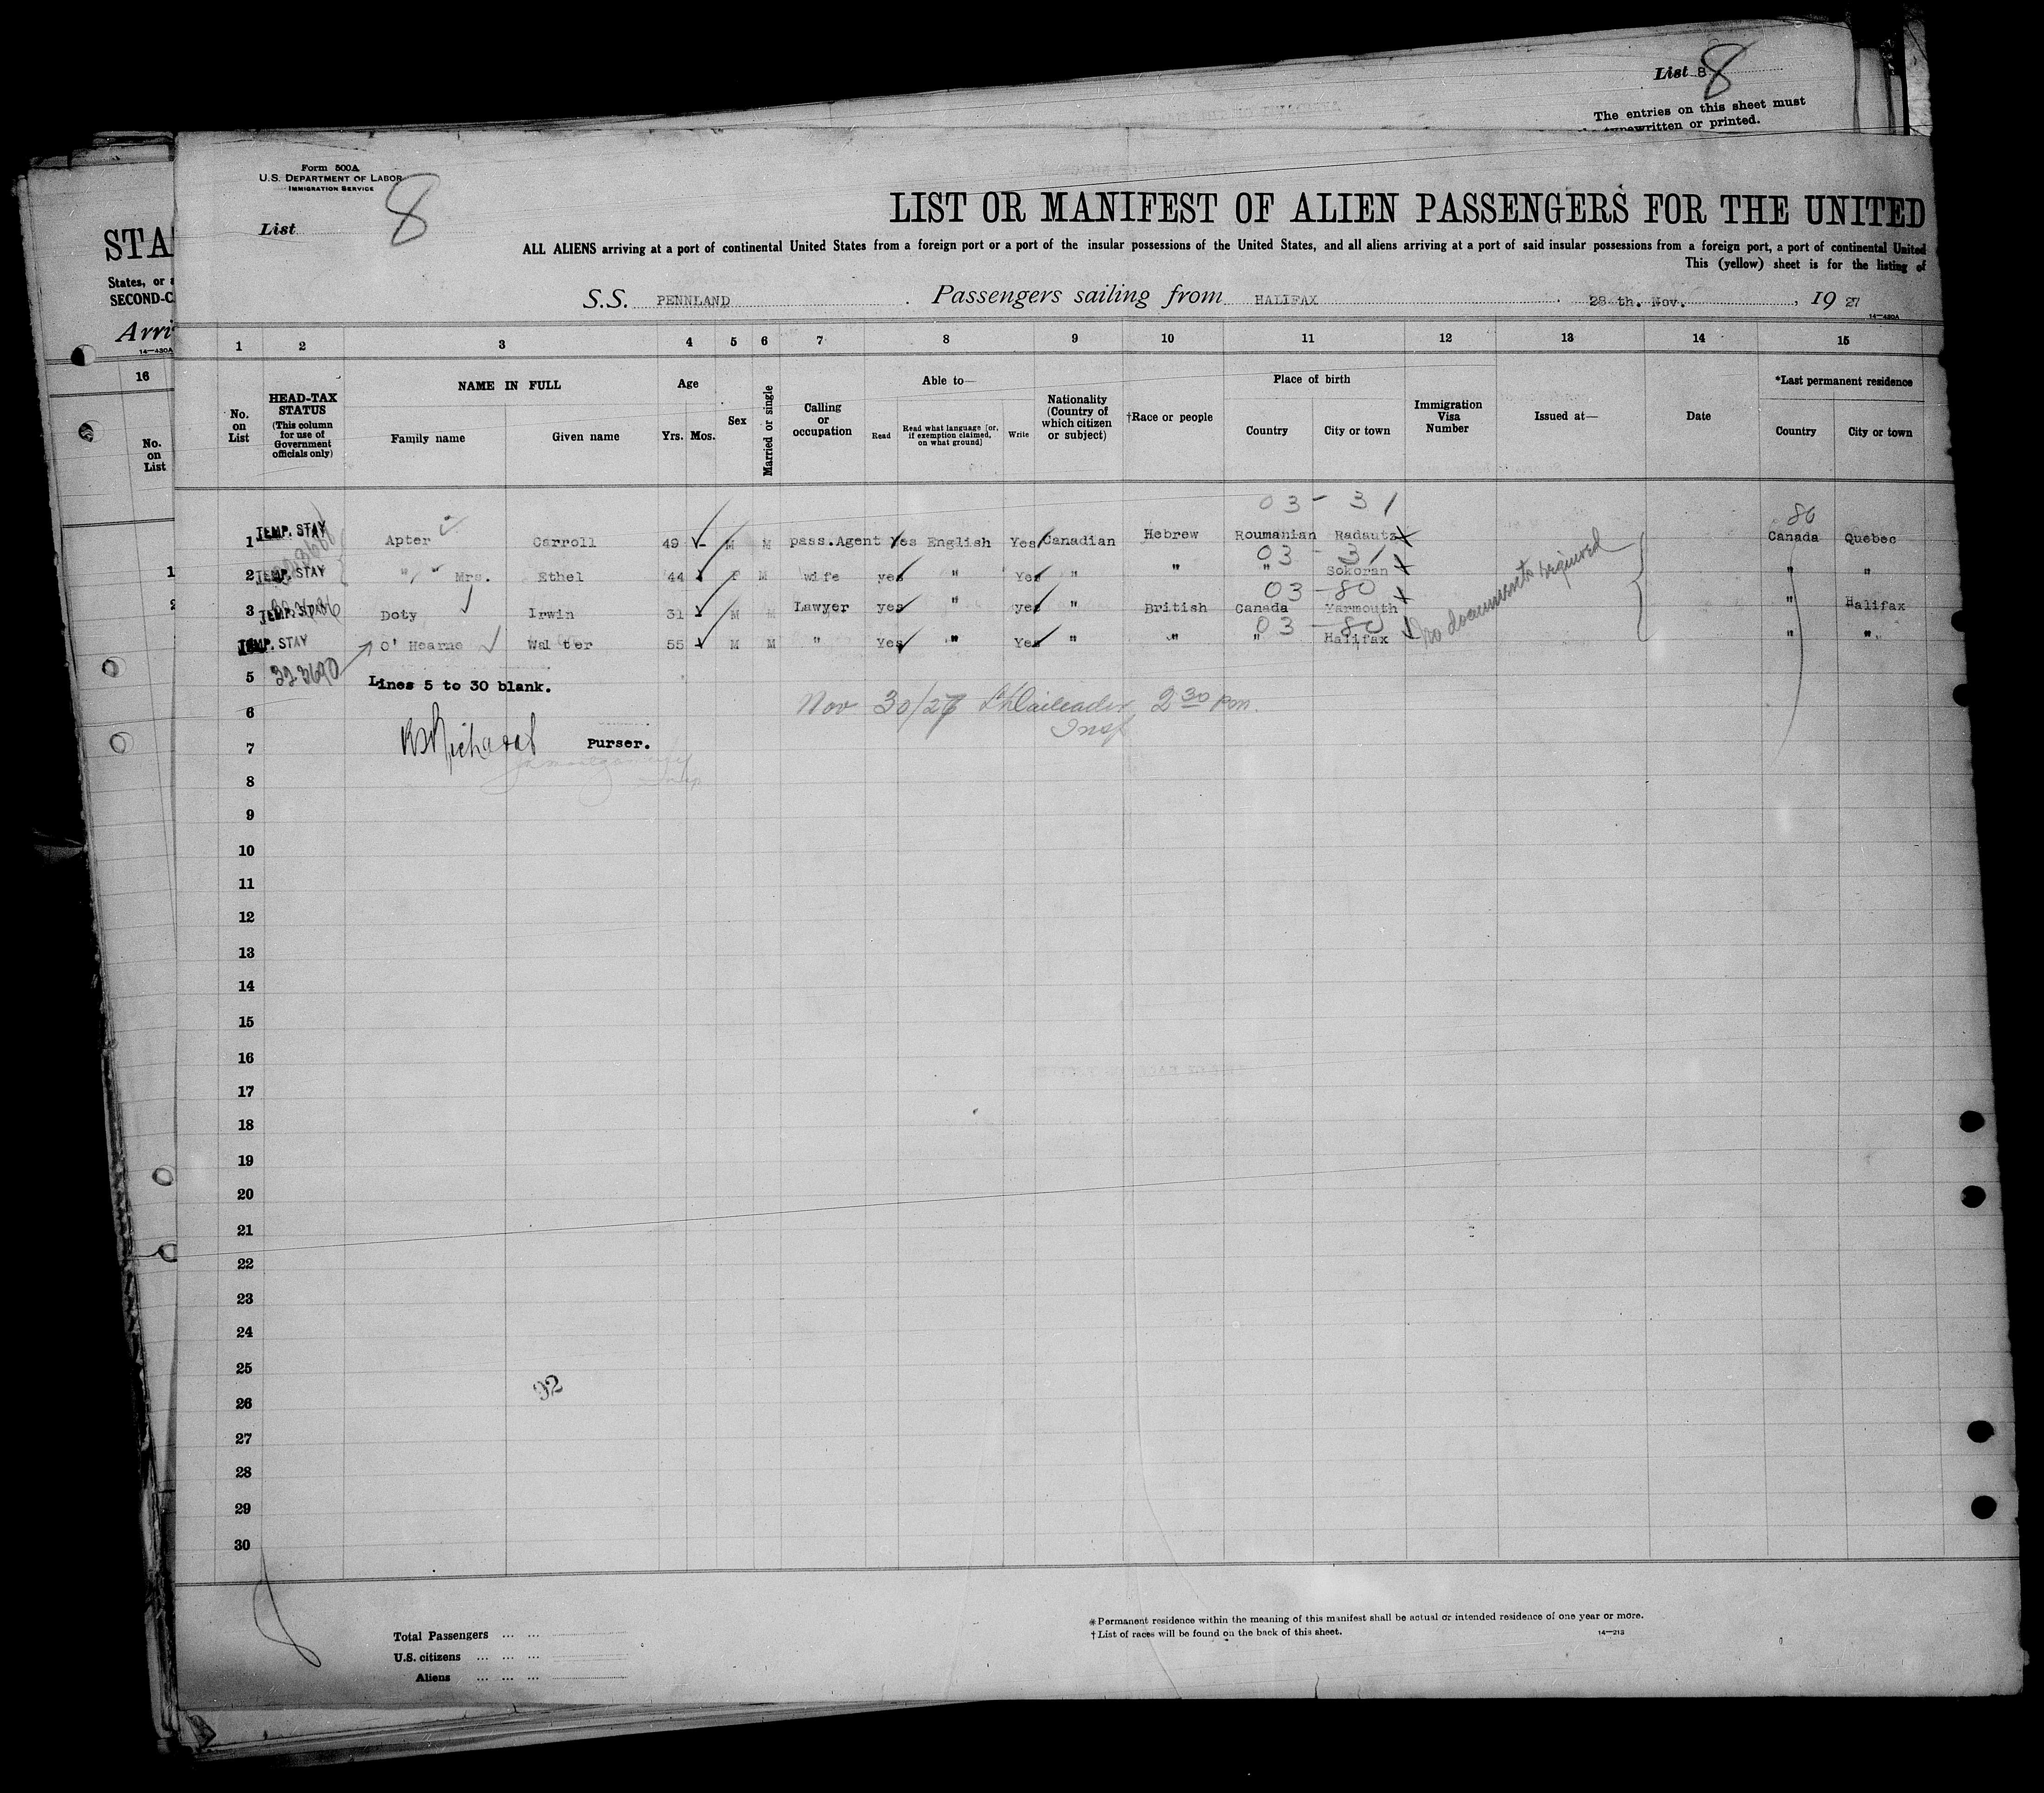 List 8 8
The entries on this sheet must
typewritten or printed.
Form 500A
U.S. DEPARTMENT OF LABOR
IMMIGRATION SERVICE
List 8
LIST OR MANIFEST OF ALIEN PASSENGERS FOR THE UNITED
ALL ALIENS arriving at a port of continental United States from a foreign port or a port of the insular possessions of the United States, and all aliens arriving at a port of said insular possessions from a foreign port, a port of continental United
This (yellow) sheet is for the listing of
S.S. PENNLAND. Passengers sailing from HALIFAX. 28 th. Nov., 19 27
14—430A
STA
States, or a
SECOND-C
Arri
14—430A
16
No. on List
1
2
1 2 3 4 5 6 7 8 9 10 11 12 13 14 15
No. on List
HEAD-TAX STATUS (This column for use of Government officials only)
NAME IN FULL
Family name Given name
Age
Yrs. Mos.
Sex
Married or single
Calling or occupation
Able to—
Read Read what language [or, if exemption claimed, on what ground] Write
Nationality (Country of which citizen or subject)
†Race or people
Place of birth
Country City or town
Immigration Visa Number
Issued at—
Date
*Last permanent residence
Country City or town
03 - 31
86
1 TEMP. STAY Apter Carroll 49 - M M pass.Agent Yes English Yes Canadian Hebrew Roumanian Radautz Canada Quebec
03 - 31
2 TEMP. STAY " " Mrs. Ethel 44 F M wife yes " Yes " " " Sokoran " "
03 - 80
3 TEMP. STAY Doty Irwin 31 M M Lawyer yes " yes " British Canada Yarmouth " Halifax
03 - 80
TEMP. STAY O' Hearne Walter 55 M M " Yes " Yes " " " Halifax " "
No documents required
5 323690
Lines 5 to 30 blank.
6 Nov 30/27 2 30 Pm.
Insp
7 Purser.
8
9
10
11
12
13
14
15
16
17
18
19
20
21
22
23
24
25
92
26
27
28
29
30
*Permanent residence within the meaning of this manifest shall be actual or intended residence of one year or more.
†List of races will be found on the back of this sheet.
14—213
Total Passengers ... ...
U.S. citizens ... ... ...
Aliens ... ... ...